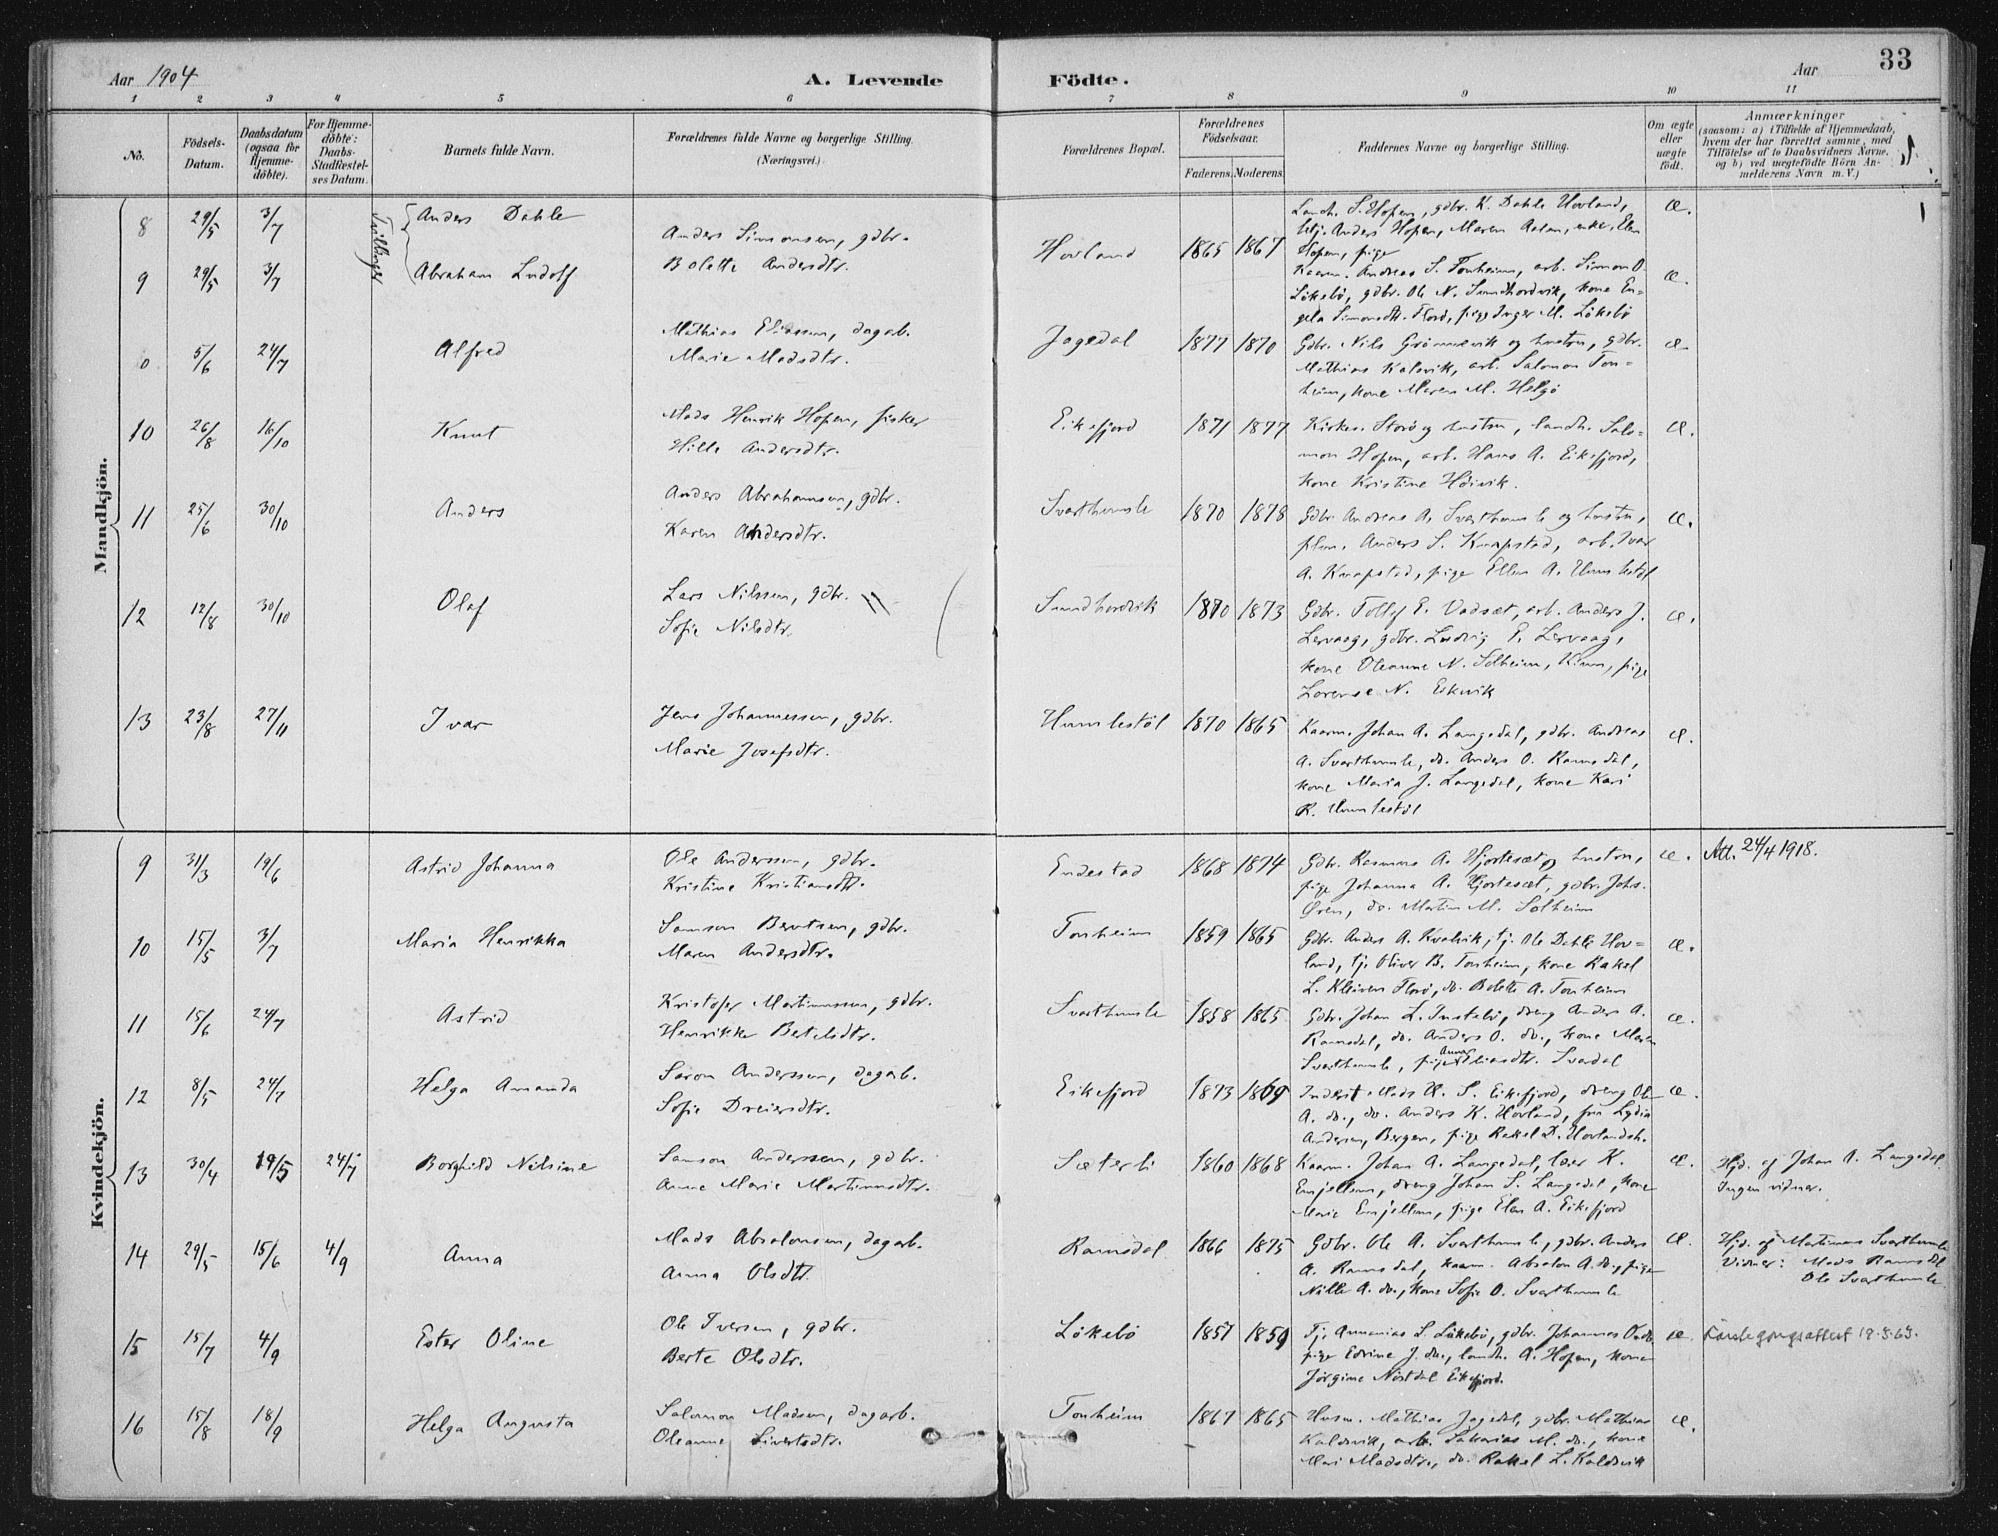 Aar 1904
A. Levende
Födte.
Aar
33
1 2 3 4 5 6 7 8 9 10 11
No.
Födsels-
Datum.
Daabsdatum
(ogsaa for
Hjemme-
döbte).
For Hjemme-
döbte:
Daabs-
Stadfæstel-
ses Datum.
Barnets fulde Navn.
Forældrenes fulde Navne og borgerlige Stilling.
(Næringsvei.)
Forældrenes Bopæl.
Forældrenes
Födselsaar.
Faderens. Moderens.
Faddernes Navne og borgerlige Stilling.
Om ægte
eller
uægte
født.
Anmærkninger
(saasom: a) i Tilfælde af Hjemmedaab,
hvem der har forrettet samme, med
Tilföielse af to Daabsvidners Navne.
og b) ved uægtefödte Börn An-
melderens Navn m. V.)
Mandkjön.
8 29/5 3/7 Anders Dahle
Tvillinger
Anders Simonsen, gdbr.
Bolette Andersdtr.
Hovland 1865 1867
Landh. S. Hopen, gdbr. K. Dahle Hovland,
tj. Anders Hopen, Maren Aalen, enke, Elen
Hopen, pige
æ.
9 29/5 3/7 Abraham Ludolf
Kaarm. Andreas S. Tonheim, arb. Simon O.
Løkebø, gdbr. Ole N. Sundhordvik, kone En-
gela Simonsdtr. Florø, pige Inger M. Løkebø
æ.
0 5/6 24/7 Alfred
Mathias Eliassen, dagarb.
Marie Madsdtr.
Jagedal 1877 1870
Gdbr. Nils Grønnevik og hustru, gdbr.
Mathias Kalsvik, arb. Salomon Ton-
heim, kone Maren M. Helgø
æ
10 26/8 16/10 Knut
Mads Henrik Hopen, fisker
Hille Andersdtr.
Eikefjord 1871 1877
Kirkes. Storø og hustru, landh. Salo-
mon Hopen, arb. Hans A. Eikefjord,
kone Kristine Høivik.
æ.
11 25/6 30/10 Anders
Anders Abrahamsen, gdbr.
Karen Andersdtr.
Svarthumle 1870 1878
Gdbr. Andreas A. Svarthumle og hustru,
Anders S. Knapstad, arb. Ivar
A. Knapstad, pige Ellen A. Humlestøl
æ.
12 12/8 30/10 Olaf
Lars Nilssen, gdbr.
Sofie Nilsdtr.
Sundhordvik 1870 1873
Gdbr. Tollef E. Vadset, arb. Anders J.
Lervaag, gdbr. Ludvig E. Lervaag,
kone Oleanne N. Solheim, Kinn, pige
Lorense N. Eikvik
æ.
13 23/8 27/11 Ivar
Jens Johannessen, gdbr.
Marie Josefsdtr.
Humlestøl 1870 1865
Kaarm. Johan A. Langedal, gdbr. Andreas
A. Svarthumle, do. Anders O. Ramsdal,
kone Maria J. Langedal, kone Kari
R. Humlestøl
æ.
Kvindekjön.
9 31/3 19/6 Astrid Johanna
Ole Anderssen, gdbr.
Kristine Kristiansdtr.
Endestad 1868 1874
Gdbr. Rasmus A. Hjortesæt og hustru,
pige Johanna A. Hjortesæt, gdbr. Johs.
Øren, do. Martin M. Solheim
æ. Att. 24/4 1918.
10 15/5 3/7 Maria Henrikka
Samson Berntsen, gdbr.
Maren Andersdtr.
Tonheim 1859 1865
Gdbr. Anders A. Kvalvik, tj. Ole Dahle Hov-
land, tj. Oliver B. Tonheim, kone Rakel
L. Kleiven Florø, do. Bolette A. Tonheim
æ.
11 15/6 24/7 Astrid
Kristofer Martinussen, gdbr.
Henrikke Bertelsdtr.
Svarthumle 1858 1865
Gdbr. Johan L. Instebø, dreng Anders A.
Ramsdal, do. Anders O. do., kone Maren
Svarthumle, pige Anna Eliasdtr. Svardal
æ.
12 8/5 24/7 Helga Amanda
Søren Anderssen, dagarb.
Sofie Dreiersdtr.
Eikefjord 1873 1869
Inderst Mads A. S. Eikefjord, dreng Ole
A. do., do. Anders K. Hovland, fru Lydia
Andersen, Bergen, pige Rakel D. Hovlandsh.
æ.
13 30/4 19/5 24/7 Borghild Nilsine
Samson Anderssen, gdbr.
Anne Marie Martinusdtr.
Sæterli 1860 1868
Kaarm. Johan A. Langedal, lærer K.
Emjellem, dreng Johan S. Langedal, kone
Marie Emjellem, pige Elen A. Eikefjord
æ. Hjd. af Johan A. Langedal
Ingen vidner.
14 29/5 15/6 4/9 Anna
Mads Absalonsen, dagarb.
Anna Olsdtr.
Ramsdal 1866 1875
Gdbr. Ole A. Svarthumle, gdbr. Anders
A. Ramsdal, kaarm. Absalon A. do., pige
Nille A. do., kone Sofie O. Svarthumle
æ. Hjd. af Martinus Svarthumle
Vidner: Mads Ramsdal
Ole Svarthumle
15 15/7 4/9 Ester Oline
Ole Iversen, gdbr.
Berte Olsdtr.
Løkebø 1857 1859
Tj. Annanias S. Løkebø, gdbr. Johannes
pige Edvine J. do., landh. A. Hopen, kone
Jørgine Nøstdal Eikefjord.
æ.
16 15/8 18/9 Helga Augusta
Salomon Madsen, dagarb.
Oleanne Sivertsdtr.
Tonheim 1867 1865
Husm. Mathias Jagedal, gdbr. Mathias
Kaldsvik, arb. Sakarias M. do., kone
Mari Madsdtr., do. Rakel L. Kaldsvik
æ.